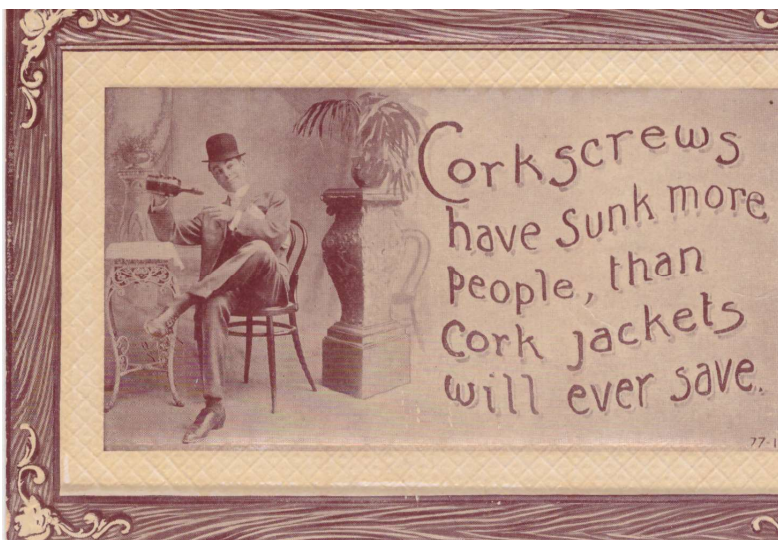 Corkscrews
have sunk more
people, than
Cork jackets
will ever save.
77-1